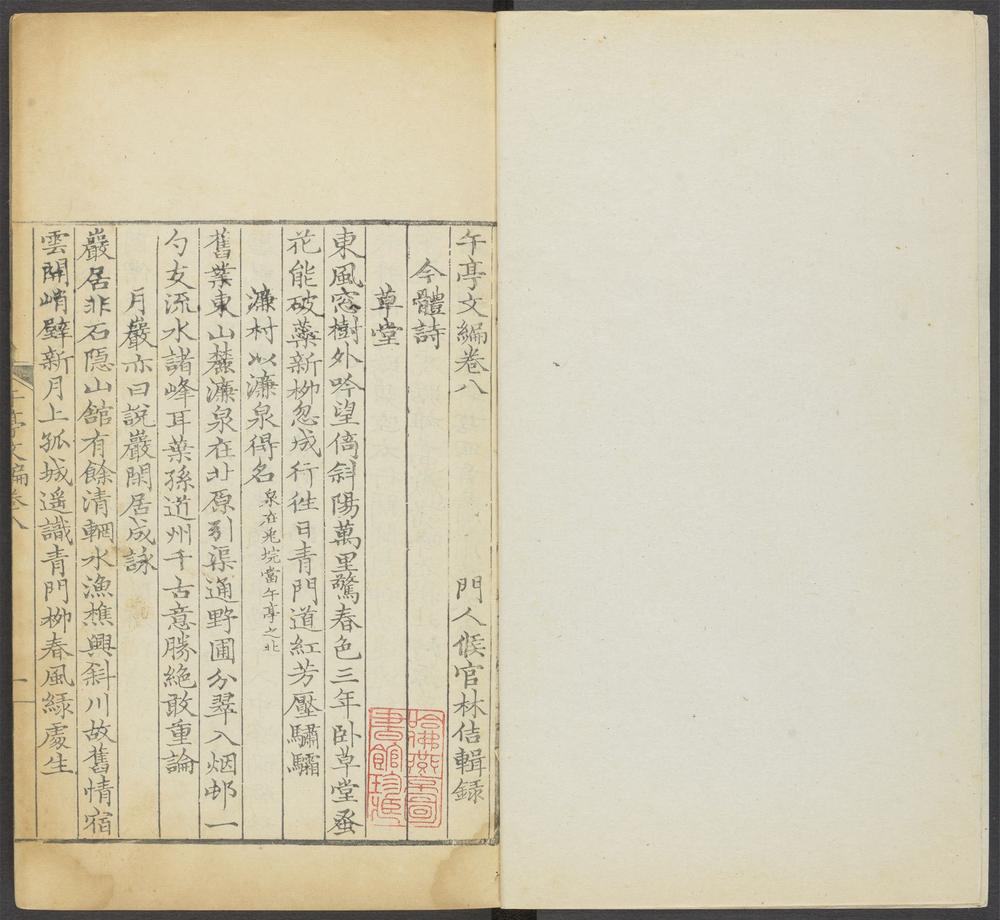 午亭文編卷八
門人候官林佶輯録
今體詩
草堂
東風窓樹外吟望倚斜陽萬里驚春色三年卧草堂蚤
花能破蘂新栁忽成行徃日青門道紅芳壓驌驦
濂村以濂泉得名泉在老垸當午亭之北
舊業東山麓濂泉在北原引渠通野圃分翠入烟邨一
勺友流水諸峰耳葉孫道州千古意勝絶敢重論
月巖亦曰說巖閑居成詠
巖居非石隠山舘有餘清輞水漁樵興斜川故舊情宿
雲開峭壁新月上孤城遥識青門栁春風緑處生
午亭文編卷八
一
哈佛燕京圖
書館珍藏